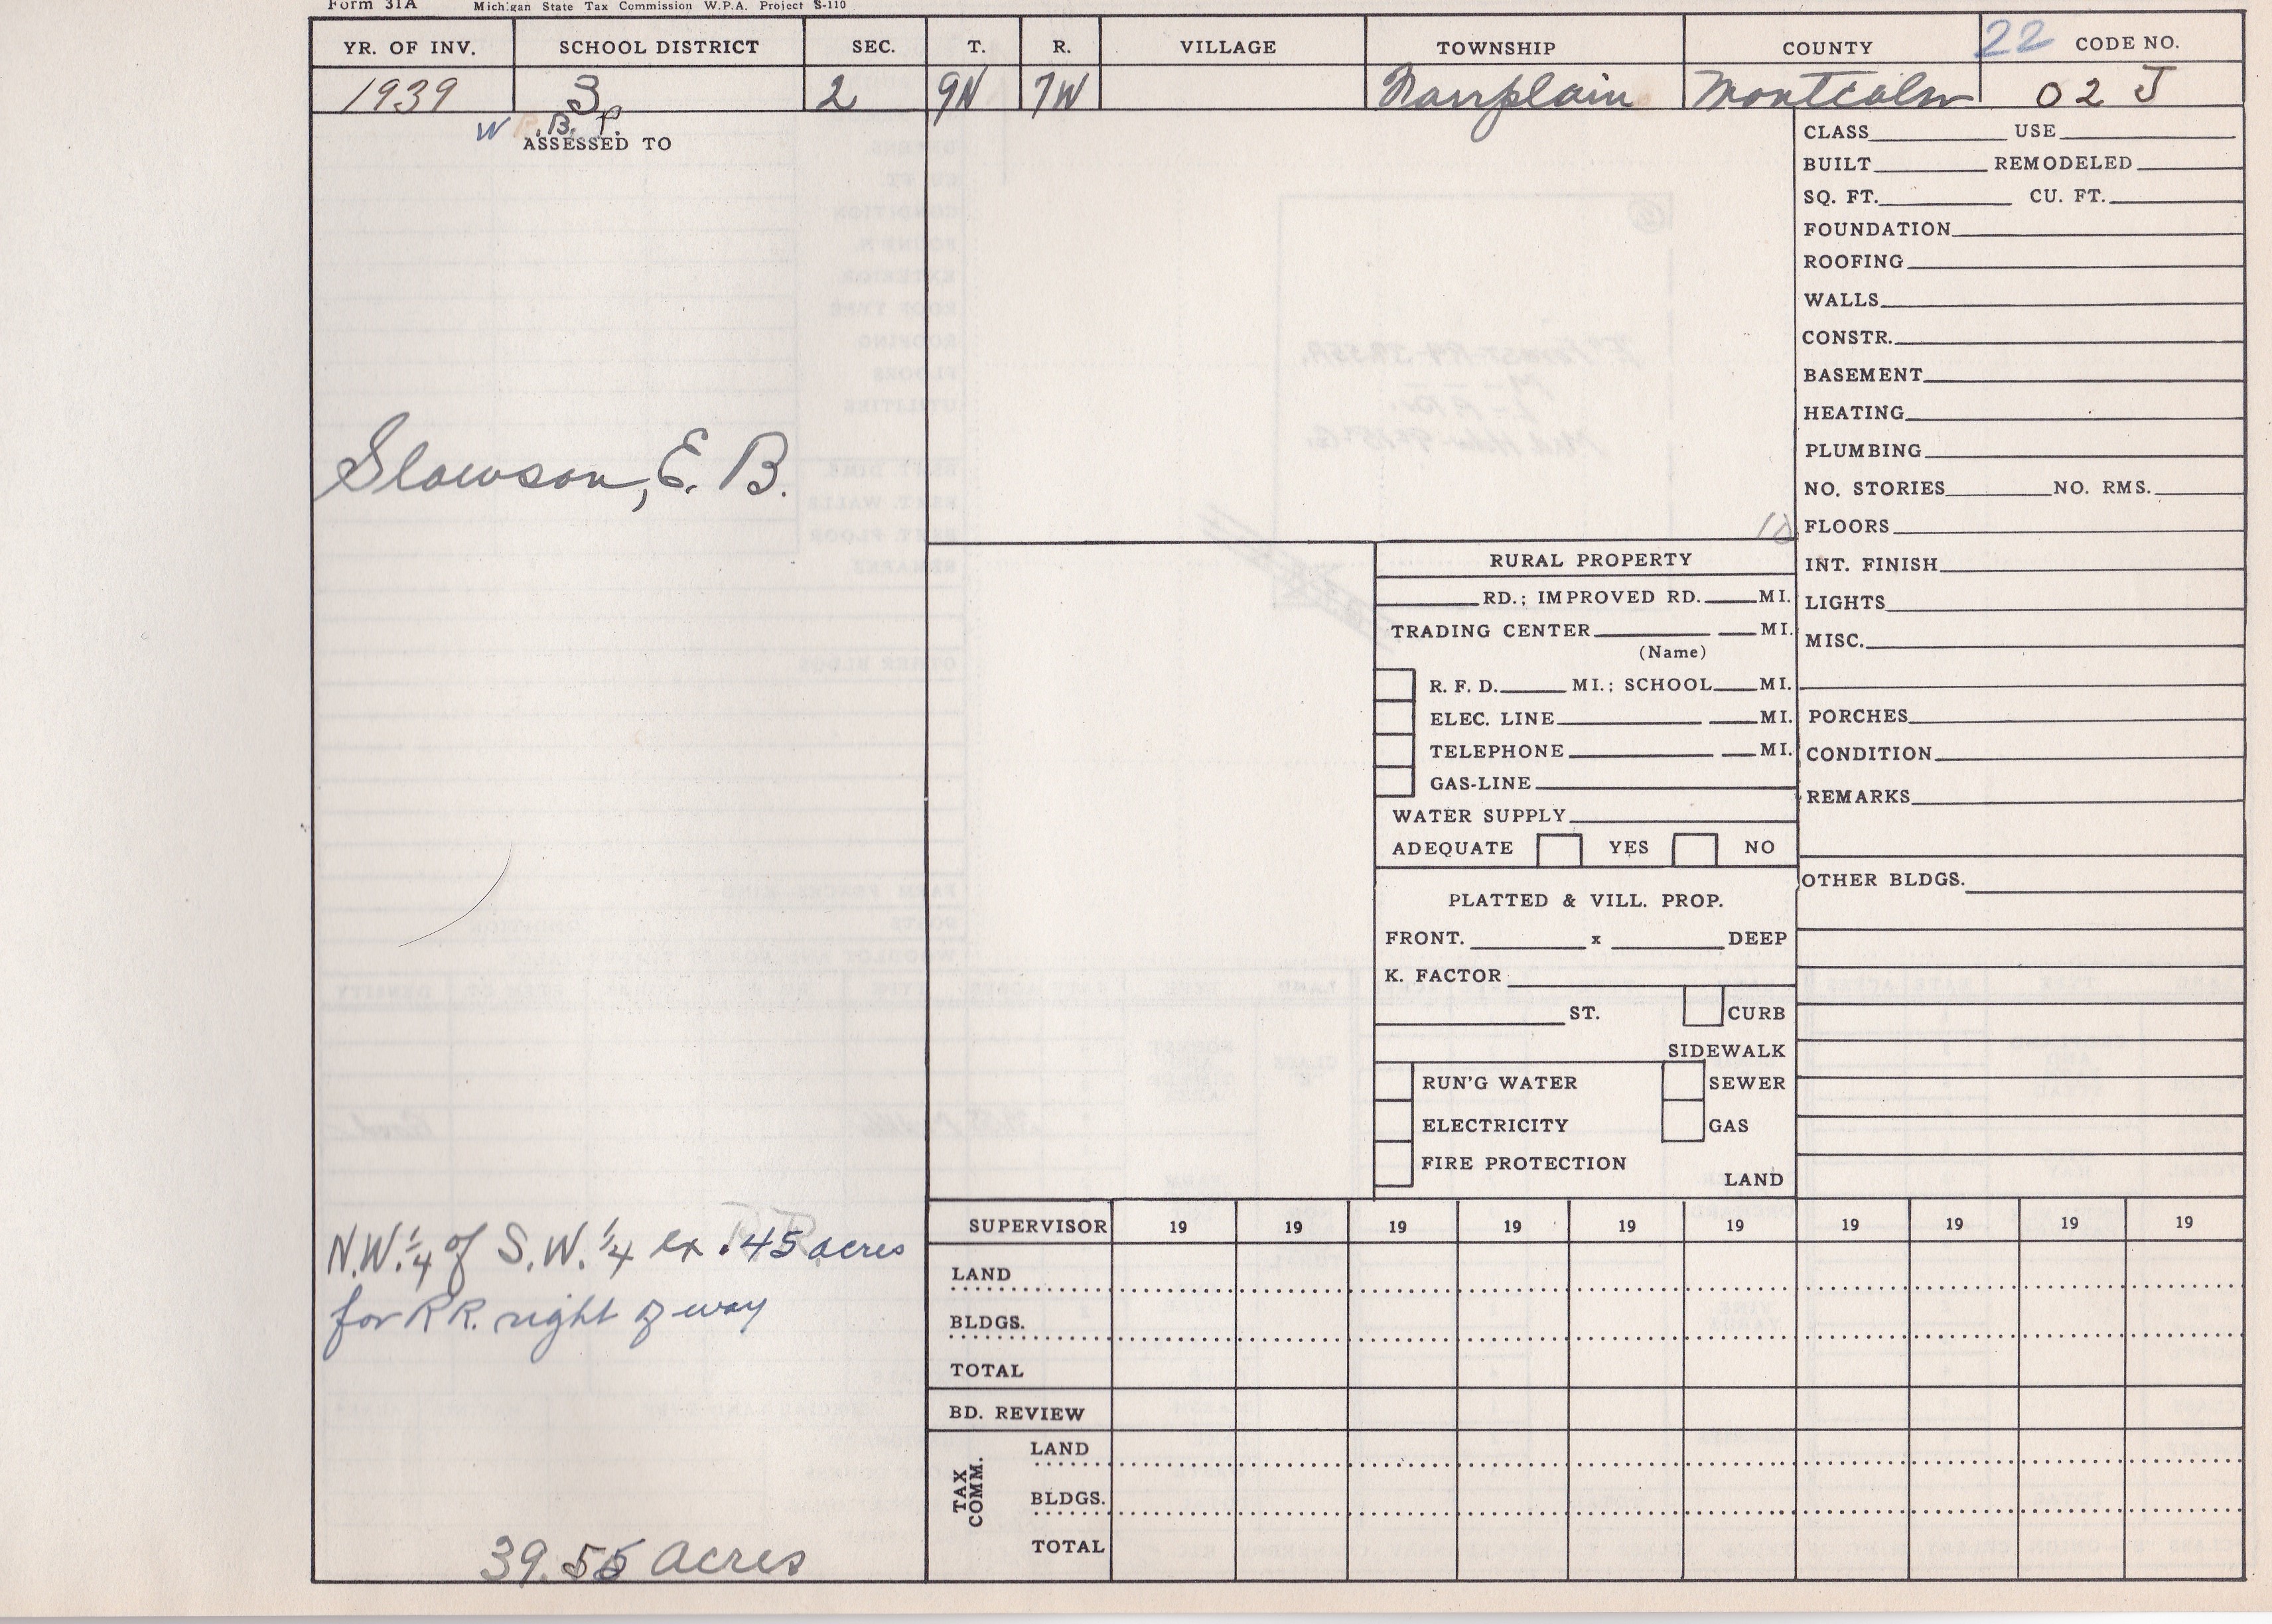 Form 31A Michigan State Tax Commission W.P.A. Project S-110
YR. OF INV. SCHOOL DISTRICT SEC. T. R. VILLAGE TOWNSHIP COUNTY 22 CODE NO.
1939 3 2 9N 7W Fairplain Montcalm 02 J
W R.B. P.
ASSESSED TO
Slawson, E. B.
N.W. 1/4 of S.W. 1/4 ex .45 acres
for R.R. right of way
39.55 acres
10
RURAL PROPERTY
RD.; IMPROVED RD. MI.
TRADING CENTER MI.
(Name)
R. F. D. MI.; SCHOOL MI.
ELEC. LINE MI.
TELEPHONE MI.
GAS-LINE
WATER SUPPLY
ADEQUATE YES NO
PLATTED & VILL. PROP.
FRONT. x DEEP
K. FACTOR
ST. CURB
SIDEWALK
RUN'G WATER SEWER
ELECTRICITY GAS
FIRE PROTECTION
LAND
CLASS USE
BUILT REMODELED
SQ. FT. CU. FT.
FOUNDATION
ROOFING
WALLS
CONSTR.
BASEMENT
HEATING
PLUMBING
NO. STORIES NO. RMS.
FLOORS
INT. FINISH
LIGHTS
MISC.
PORCHES
CONDITION
REMARKS
OTHER BLDGS.
SUPERVISOR 19 19 19 19 19 19 19 19 19 19
LAND
BLDGS.
TOTAL
BD. REVIEW
TAX COMM.
LAND
BLDGS.
TOTAL